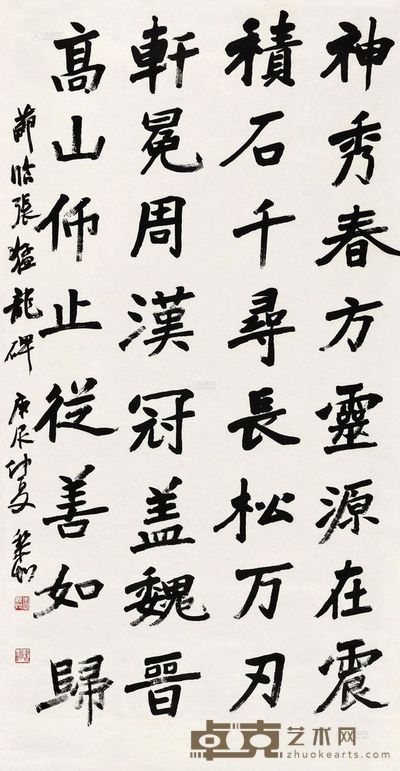 神秀春方靈源在震
積石千尋長松万刃
軒冕周漢冠盖魏晉
高山仰止從善如歸
節臨張猛龍碑 庚辰仲夏
卓克艺术网
www.zhuokearts.com